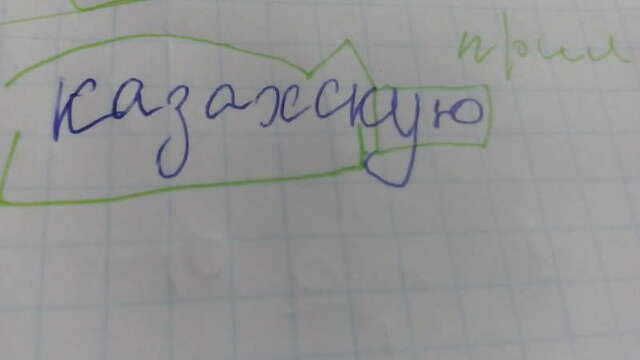 прил
казахскую